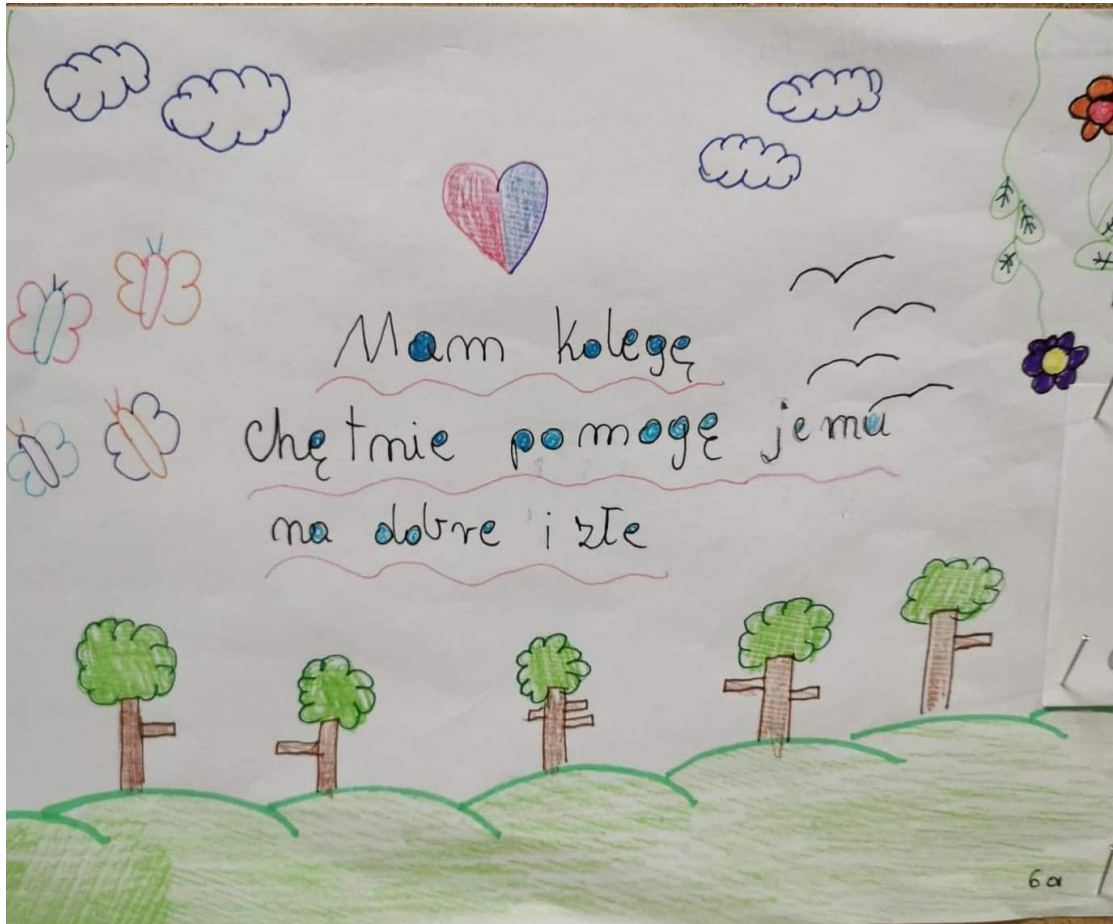 Mam kolegę
chętnie pomogę jemu
na dobre i złe
6a